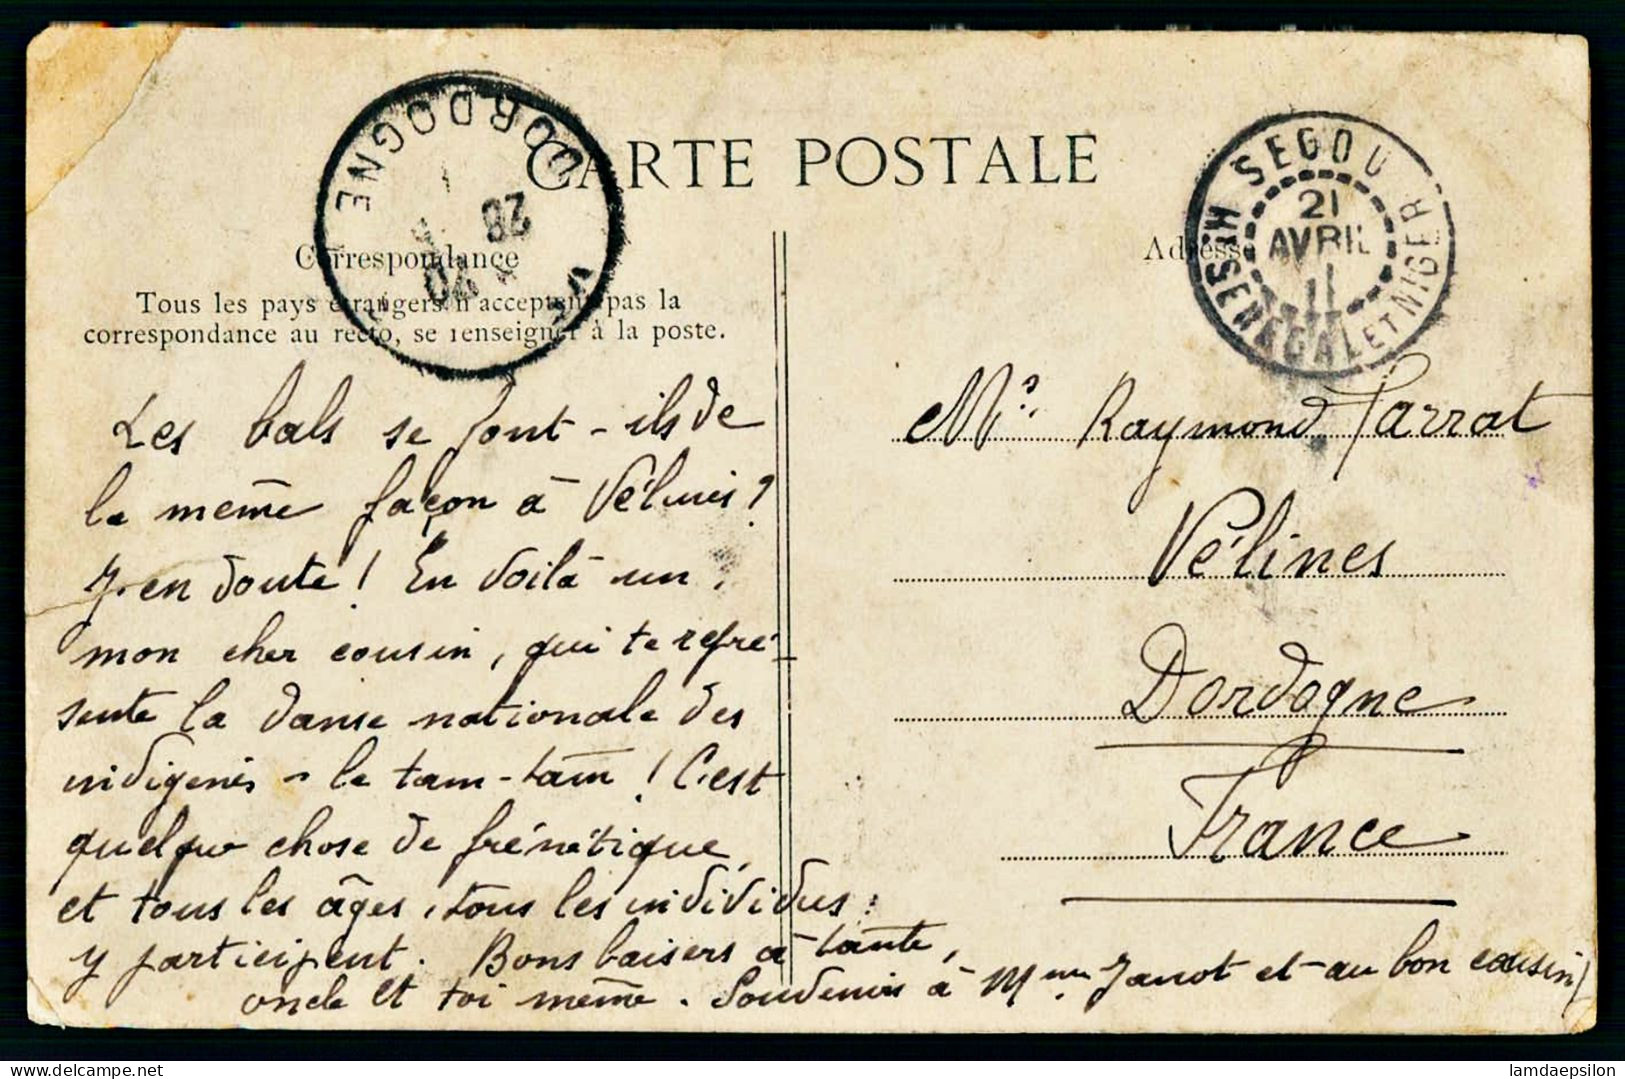 CARTE POSTALE
Correspondance
Tous les pays étrangers n'acceptent pas la
correspondance au recto, se renseigner à la poste.
Les bals se font-ils de
la même façon à Vélines ?
J'en doute ! En voilà un,
mon cher cousin, qui te repré-
sente la danse nationale des
indigènes - le tam-tam ! C'est
quelque chose de frénétique,
et tous les âges, tous les individus
y participent. Bons baisers à tante,
oncle et toi même. Souvenir à Mme Janot et au bon cousin
DORDOGNE
28
SEGOU
21
AVRIL
11
HT SENEGAL ET NIGER
Adresse
Mr. Raymond Tarrat
Vélines
Dordogne
France
delcampe.net
lamdaepsilon